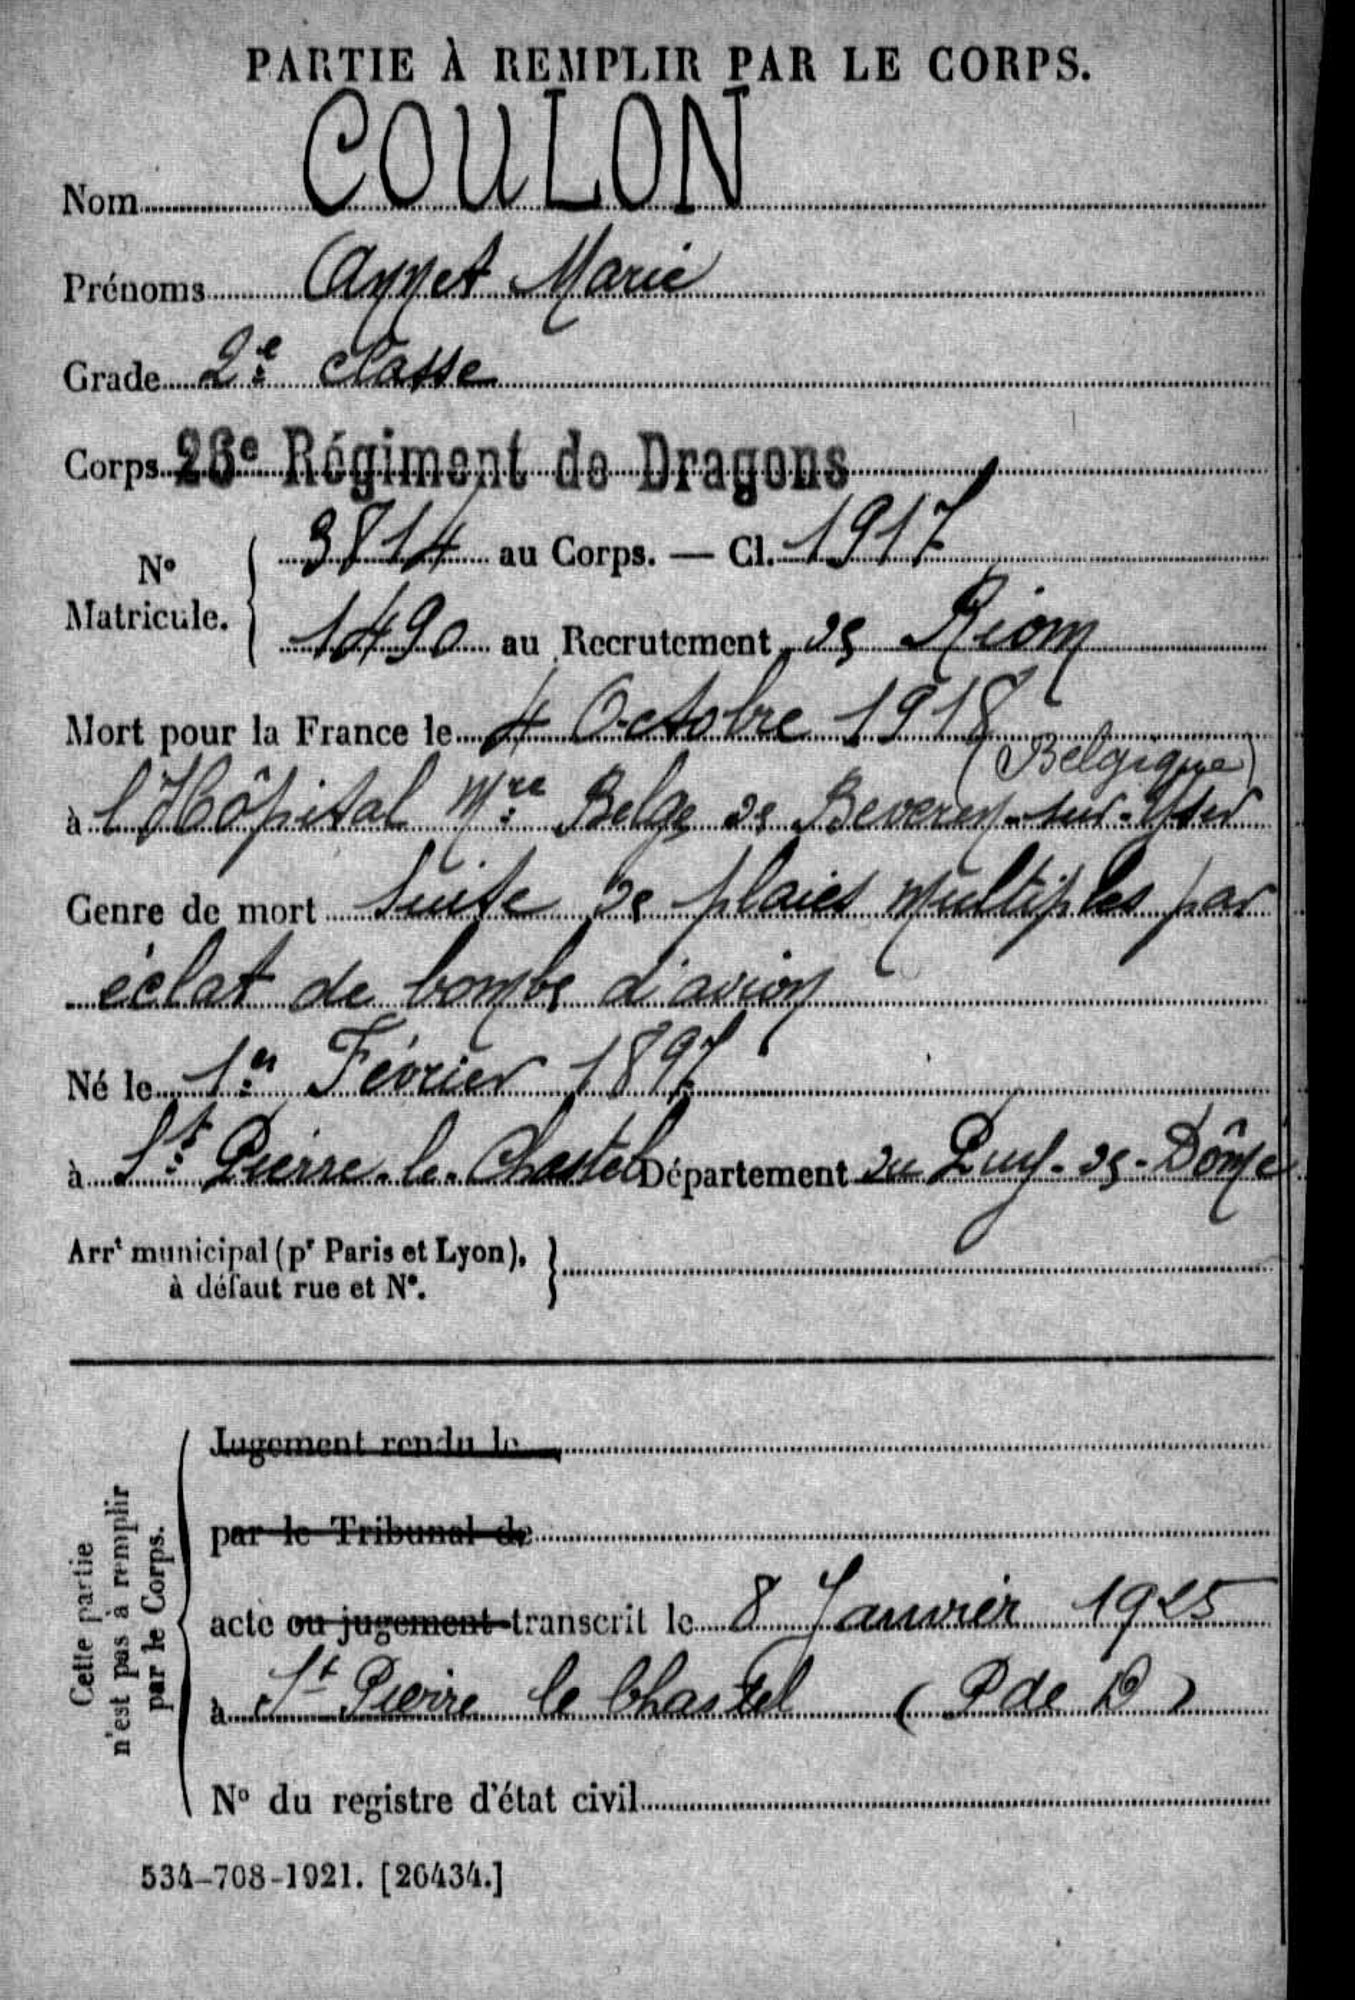 PARTIE À REMPLIR PAR LE CORPS.
Nom COULON
Prénoms Annet Marie
Grade 2e classe
Corps Régiment de Dragons
3814 au Corps. — Cl. 1917
N° Matricule.
1490 au Recrutement de Riom
Mort pour la France le 4 Octobre 1918
(Belgique)
à l'Hôpital Mre Belge de Beveren-sur-Yser
Genre de mort Suite de plaies multiples par
éclat de bombe d'avion
Né le 1er Février 1897
à St Pierre-le-Chastel Département du Puy-de-Dôme
Arrt municipal (pr Paris et Lyon),
à défaut rue et N°.
Cette partie
n'est pas à remplir
par le Corps.
Jugement rendu le
par le Tribunal de
acte ou jugement transcrit le 8 Janvier 1925
à St Pierre le Chastel (P de D)
N° du registre d'état civil
534-708-1921. [26434.]